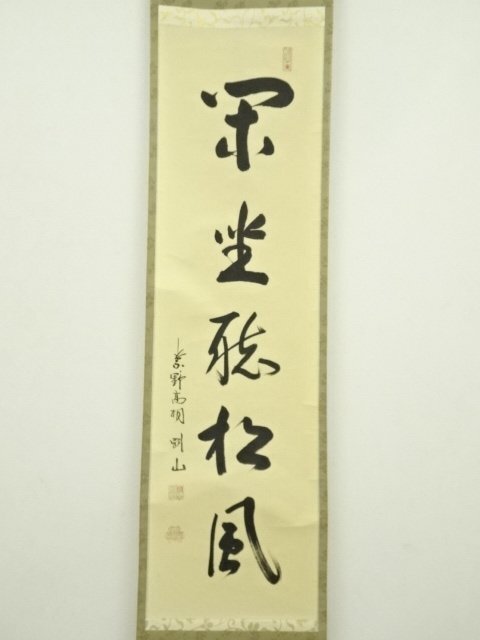 閑坐聴松風
紫野高明 剛山